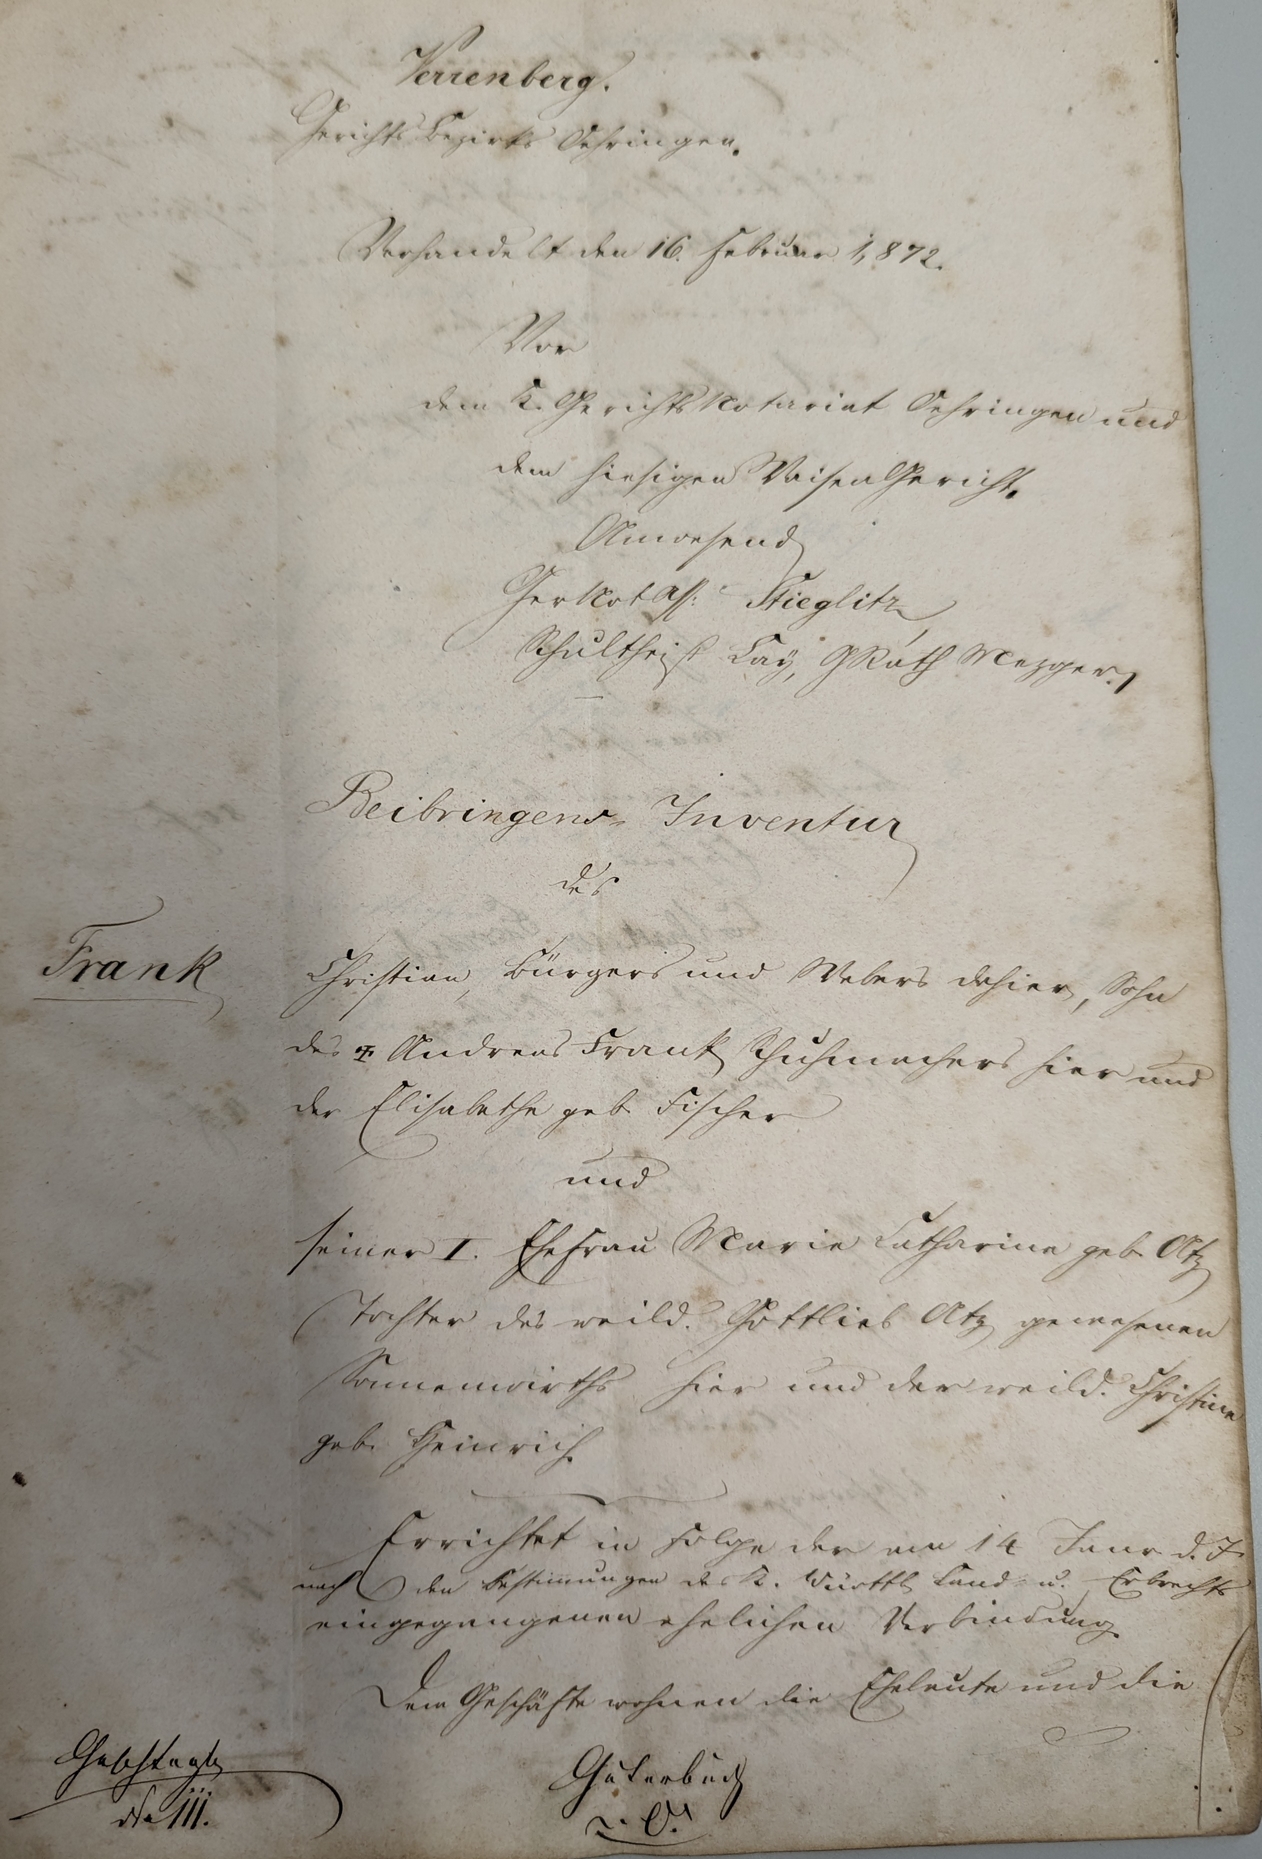 Verrenberg.
Gerichts Bezirks Oehringen.
Verhandelt den 16. Februar 1,872.
Vor
dem K. Gerichts Notariat Oehringen und
dem hiesigen Waisen Gericht.
Anwesend
Ger Not Ass: Stieglitz,
Schultheiß Lay, GRath Mezger.
Beibringens-Inventur
des
Frank
Christian, Bürgers und Webers dahier, Sohn
des Andreas Frank Schuhmachers hier und
der Elisabethe geb. Fischer
und
seiner I. Ehefrau Marie Catharine geb. Atz
Tochter des weild. Gottlieb Atz gewesenen
Sonnenwirths hier und der weild. Christine
geb. Heinrich.
Errichtet in Folge der am 14 Janr. d. J.
nach den Bestimmungen des K. Württb Land- u. Erbrechts
eingegangenen ehelichen Verbindung.
Dem Geschäfte wohnen die Eheleute und die
Güterbuch